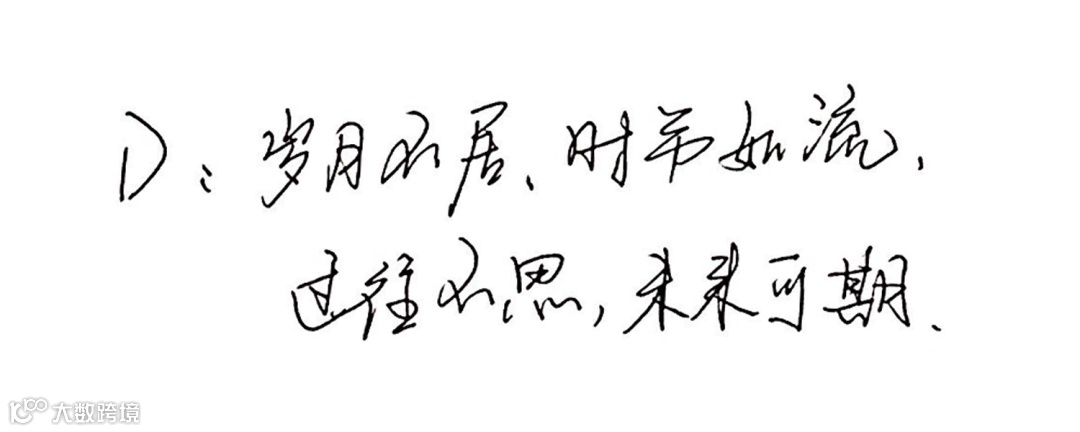 D：岁月不居、时节如流，
过往不思，未来可期、
大数跨境